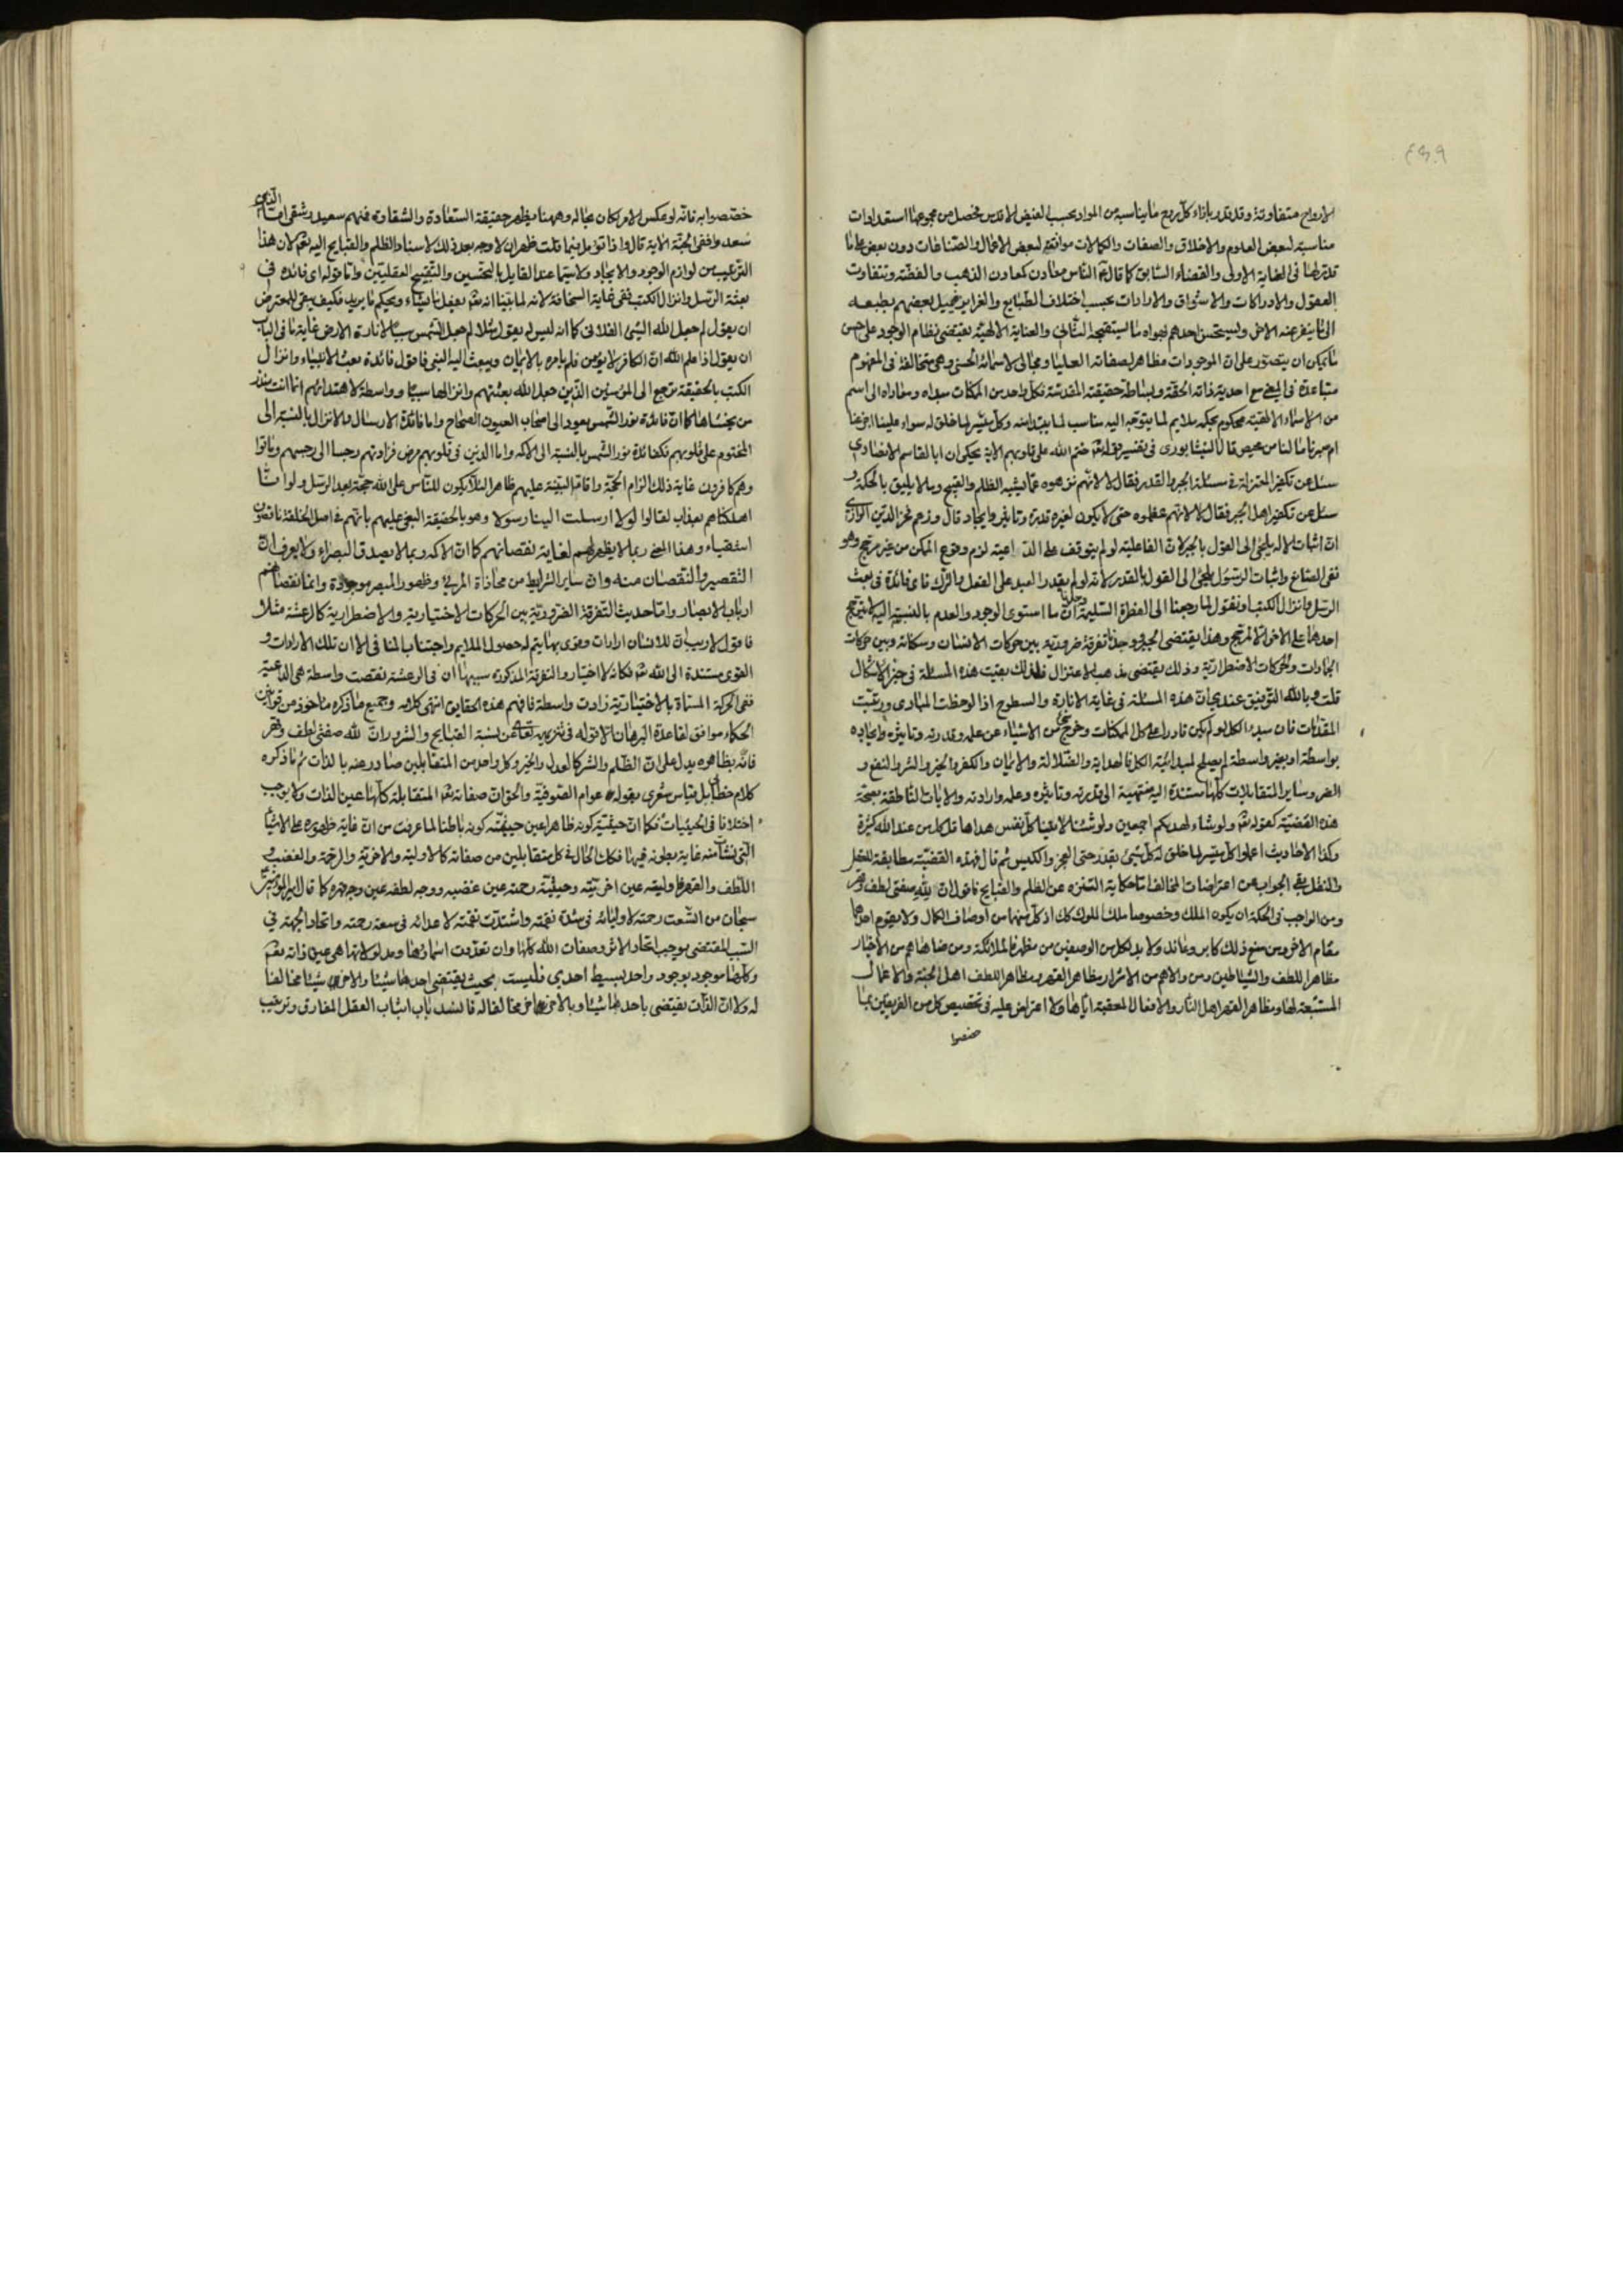 الارواح متفاوتة وقد قدر بإزاء كل روح ما يناسبه من المواد بحسب الفيض الاقدس فحصل من مجموعها استعدادات
مناسبة لبعض العلوم والاخلاق والصفات والكمالات موافقة لبعض الافعال والصناعات دون بعض على ما
قدر لها في العناية الاولى والقضاء السابق كما قال الناس معادن كمعادن الذهب والفضة وتتفاوت
العقول والادراكات والاشواق والارادات بحسب اختلاف الطبايع والغرايز فيميل بعضهم بطبعه
الى ما ينفر عنه الاخر ويستحسن احدهم بهواه ما يستقبحه الثاني والعناية الالهية يقتضي نظام الوجود على احسن
ما يمكن ان يتصور على ان الموجودات مظاهر لصفاته العليا ومجالي لاسمائه الحسنى وهي متخالفة في المفهوم
متباعدة في المعنى مع احدية ذاته الحقة وبساطة حقيقته المقدسة فكل واحد من الممكنات مبداه ومعاده الى اسم
من الاسماء الالهية محكوم بحكمه ملايم لما يتوجه اليه مناسب لما يبتدا منه وكل ميسر لما خلق له سواء علينا اجزعنا
ام صبرنا ما لنا من محيص قال النيشابوري في تفسير قوله تعالى ختم الله على قلوبهم الاية يحكى ان ابا القاسم الانصاري
سئل عن تكفير المعتزلة في مسئلة الجبر والقدر فقال لا لانهم نزهوه عما يشبه الظلم والقبيح وما لا يليق بالحكمة و
سئل عن تكفير اهل الجبر فقال لا لانهم عظموه حتى لا يكون لغيره قدرة وتاثير وايجاد قال وزعم فخر الدين الرازي
ان اثبات الاله يلجئ الى القول بالجبر لان الفاعلية لو لم يتوقف على الداعية لزم وقوع الممكن من غير مرجح وهو
نفي الصانع واثبات الرسول يلجئ الى القول بالقدر لانه لو لم يقدر العبد على الفعل والترك فاي فائدة في بعث
الرسل وانزال الكتب او نقول لما رجعنا الى الفطرة السليمة وجدنا ان ما استوى الوجود والعدم بالنسبة اليه لا يترجح
احدهما على الاخر الا لمرجح وهذا يقتضي الجبر ونجد تفرقة ضرورية بين حركات الانسان وسكناته وبين حركات
الجمادات والحركات الاضطرارية وذلك يقتضي مذهب الاعتزال فلذلك بقيت هذه المسئلة في حيز الاشكال
قلت وبالله التوفيق عندي ان هذه المسئلة في غاية الانارة والسطوح اذا لوحظت المبادي ورتبت
المقدمات فان مبدء الكل لو لم يكن قادرا على كل الممكنات وخرج شئ من الاشياء عن علمه وقدرته وتاثيره وايجاده
بواسطة او بغير واسطة لم يصلح لمبدائية الكل فالهداية والضلالة والايمان والكفر والخير والشر والنفع و
الضر وساير المتقابلات كلها مستندة اليه منتهية الى قدرته وتاثيره وعلمه وارادته والايات الناطقة بصحة
هذه القضية كقوله تعالى ولو شاء لهديكم اجمعين ولو شئنا لاتينا كل نفس هداها قل كل من عند الله كثيرة
وكذا الاحاديث اعملوا كل ميسر لما خلق له كل شئ بقدر حتى العجز والكيس ثم قال فهذه القضية مطابقة للعقل
والنقل بقي الجواب عن اعتراضات المخالف اما حكاية التنزه عن الظلم والقبايح فاقول ان لله صفتي لطف وقهر
ومن الواجب في الحكمة ان يكون الملك وخصوصا ملك الملوك كك اذ كل منهما من اوصاف الكمال ولا يقوم احدهما
مقام الاخر ومن منع ذلك كابر وعاند ولا بد لكل من الوصفين من مظهر فالملائكة ومن ضاهاهم من الاخيار
مظاهر اللطف والشياطين ومن والاهم من الاشرار مظاهر القهر ومظاهر اللطف اهل الجنة والاعمال
المستتبعة لها ومظاهر القهر اهل النار والافعال المعقبة اياها ولا اعتراض عليه في تخصيص كل من الفريقين بما
خصصوا
خصصوا به فانه لو عكس الامر لكان بحاله وههنا يظهر حقيقة السعادة والشقاوة فمنهم شقي وسعيد
سعدوا ففي الجنة الاية قال واذا تؤمل فيما قلت ظهر ان لا وجه بعد ذلك لاسناد الظلم والقبايح اليه تعالى لان هذا
الترتيب من لوازم الوجود والايجاد ولا سيما عند القايل بالتحسين والتقبيح العقليتين واما قوله اي فائدة في
بعثة الرسل وانزال الكتب ففي غاية السخافة لانه لما بينا انه تعالى يفعل ما يشاء ويحكم ما يريد فكيف يبقى للمعترض
ان يقول لم جعل الله الشئ الفلاني كما انه ليس له يقول مثلا لم جعل الشمس سببا لانارة الارض غاية ما في الباب
ان يقول اذا علم الله ان الكافر لا يؤمن فلم يامره بالايمان ويبعث اليه النبي فاقول فائدة بعث الانبياء وانزال
الكتب بالحقيقة يرجع الى المؤمنين الذين جعل الله بعثتهم وانزالها سببا وواسطة لاهتدائهم انما انت منذر
من يخشاها كما ان فائدة نور الشمس يعود الى اصحاب العيون الصحاح واما فائدة الارسال والانزال بالنسبة الى
المختوم على قلوبهم فكفائدة نور الشمس بالنسبة الى الاكمه واما الذين في قلوبهم مرض فزادتهم رجسا الى رجسهم وماتوا
وهم كافرون غاية ذلك الزام الحجة واقامة البينة عليهم ظاهرا لئلا يكون للناس على الله حجة بعد الرسل ولو انا
اهلكناهم بعذاب لقالوا لولا ارسلت الينا رسولا وهو بالحقيقة النعي عليهم بانهم في اصل الخلقة ناقصون
اشقياء وهذا المعنى ربما لا يظهر لهم لغاية نقصانهم كما ان الاكمه ربما لا يصدق البصراء ولا يعرف ان
التقصير والنقصان منه وان ساير الشرايط من محاذاة المرئي وظهور المبصر موجودة وانما نقصانهم
ارباب الابصار واما حديث التفرقة الضرورية بين الحركات الاختيارية والاضطرارية كالرعشة مثلا
فاقول لا ريب ان للانسان ارادات وقوى بها يتم له حصول الملايم واجتناب المنافي الا ان تلك الارادات و
القوى مستندة الى الله تعالى فكانه لا اختيار والتفرقة المذكورة سببها ان في الرعشة نقصت واسطة هي الداعية
ففي الحركة المسماة بالاختيارية زادت واسطة فافهم هذه الحقايق انتهى كلامه وجميع ما ذكره ماخوذ من قوانين
الحكماء موافق لقاعدة البرهان الا قوله في تنزيهه تعالى عن نسبة القبايح والشرور ان لله صفتي لطف وقهر
فانه بظاهره يدل على ان الظلم والشر كالعدل والخير وكل واحد من المتقابلين صادر عنه بالذات ثم ما ذكره
كلام خطابي بل قياس شعري يقوله عوام الصوفية والحق ان صفاته تعالى المتقابلة كلها عين الذات ولا يوجب
اختلافا في الحيثيات فكما ان حيثية كونه ظاهرا عين حيثية كونه باطنا لما عرفت من ان غاية ظهوره على الاشياء
التي نشات منه غاية بطونه فيها فكك الحال في كل متقابلين من صفاته كالاولية والاخرية والرحمة والغضب و
اللطف والقهر فاوليته عين اخريته وحيثية رحمته عين غضبه ووجه لطفه عين وجه قهره كما قال امير المؤمنين
سبحان من اتسعت رحمته لاوليائه في شدة نقمته واشتدت نقمته لاعدائه في سعة رحمته واتحاد الجهة في
السبب المقتضي يوجب اتحاد الاثر وصفات الله كلها وان تعددت اسماؤها ومدلولاتها هي عين ذاته نعم
وكلها موجود بوجود واحد بسيط احدي فليست بحيث يقتضي احدهما شيئا والاخرى شيئا مخالفا
له ولا ان الذات يقتضي باحدهما شيئا وبالاخرى مخالفا له فانسد باب اثبات العقل المفارق وترتيب